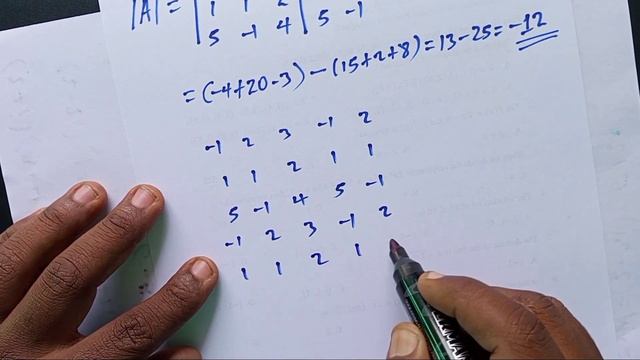 |A| = | 1 1 2 |
5 -1 4 | 5 -1
= (-4+20-3) - (15+2+8) = 13-25 = -12
-1 2 3 -1 2
1 1 2 1 1
5 -1 4 5 -1
-1 2 3 -1 2
1 1 2 1